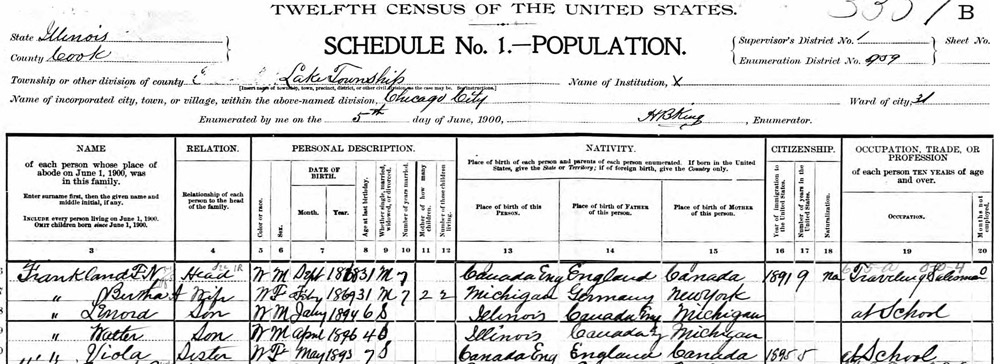 TWELFTH CENSUS OF THE UNITED STATES.
B
State Illinois
County Cook
SCHEDULE No. 1.—POPULATION.
Supervisor's District No. 1
Sheet No.
Enumeration District No. 909
Township or other division of county Lake Township
Name of Institution, X
Name of incorporated city, town, or village, within the above-named division, Chicago City
Ward of city, 31
Enumerated by me on the 5th day of June, 1900, HB King, Enumerator.
NAME RELATION. PERSONAL DESCRIPTION. NATIVITY. CITIZENSHIP. OCCUPATION, TRADE, OR PROFESSION
of each person whose place of abode on June 1, 1900, was in this family.
Enter surname first, then the given name and middle initial, if any.
INCLUDE every person living on June 1, 1900.
OMIT children born since June 1, 1900.
Relationship of each person to the head of the family.
Color or race.
Sex.
DATE OF BIRTH.
Month. Year.
Age at last birthday.
Whether single, married, widowed, or divorced.
Number of years married.
Mother of how many children.
Number of these children living.
Place of birth of each person and parents of each person enumerated. If born in the United States, give the State or Territory; if of foreign birth, give the Country only.
Place of birth of this PERSON.
Place of birth of FATHER of this person.
Place of birth of MOTHER of this person.
Year of immigration to the United States.
Number of years in the United States.
Naturalization.
of each person TEN YEARS of age and over.
OCCUPATION.
Months not employed.
3 4 5 6 7 8 9 10 11 12 13 14 15 16 17 18 19 20
Frankland F N Head W M Sept 31 M 7 Canada Eng England Canada 1891 9 na Traveling Salesman
" Bertha A Wife W F Feby 1869 31 M 7 2 2 Michigan Germany New York
" Lenord Son W M July 1894 6 S Illinois Canada Eng Michigan at School
" Walter Son W M April 1896 4 S Illinois Canada Michigan
" Viola Sister W F May 1893 7 S Canada Eng England Canada 1895 5 at School